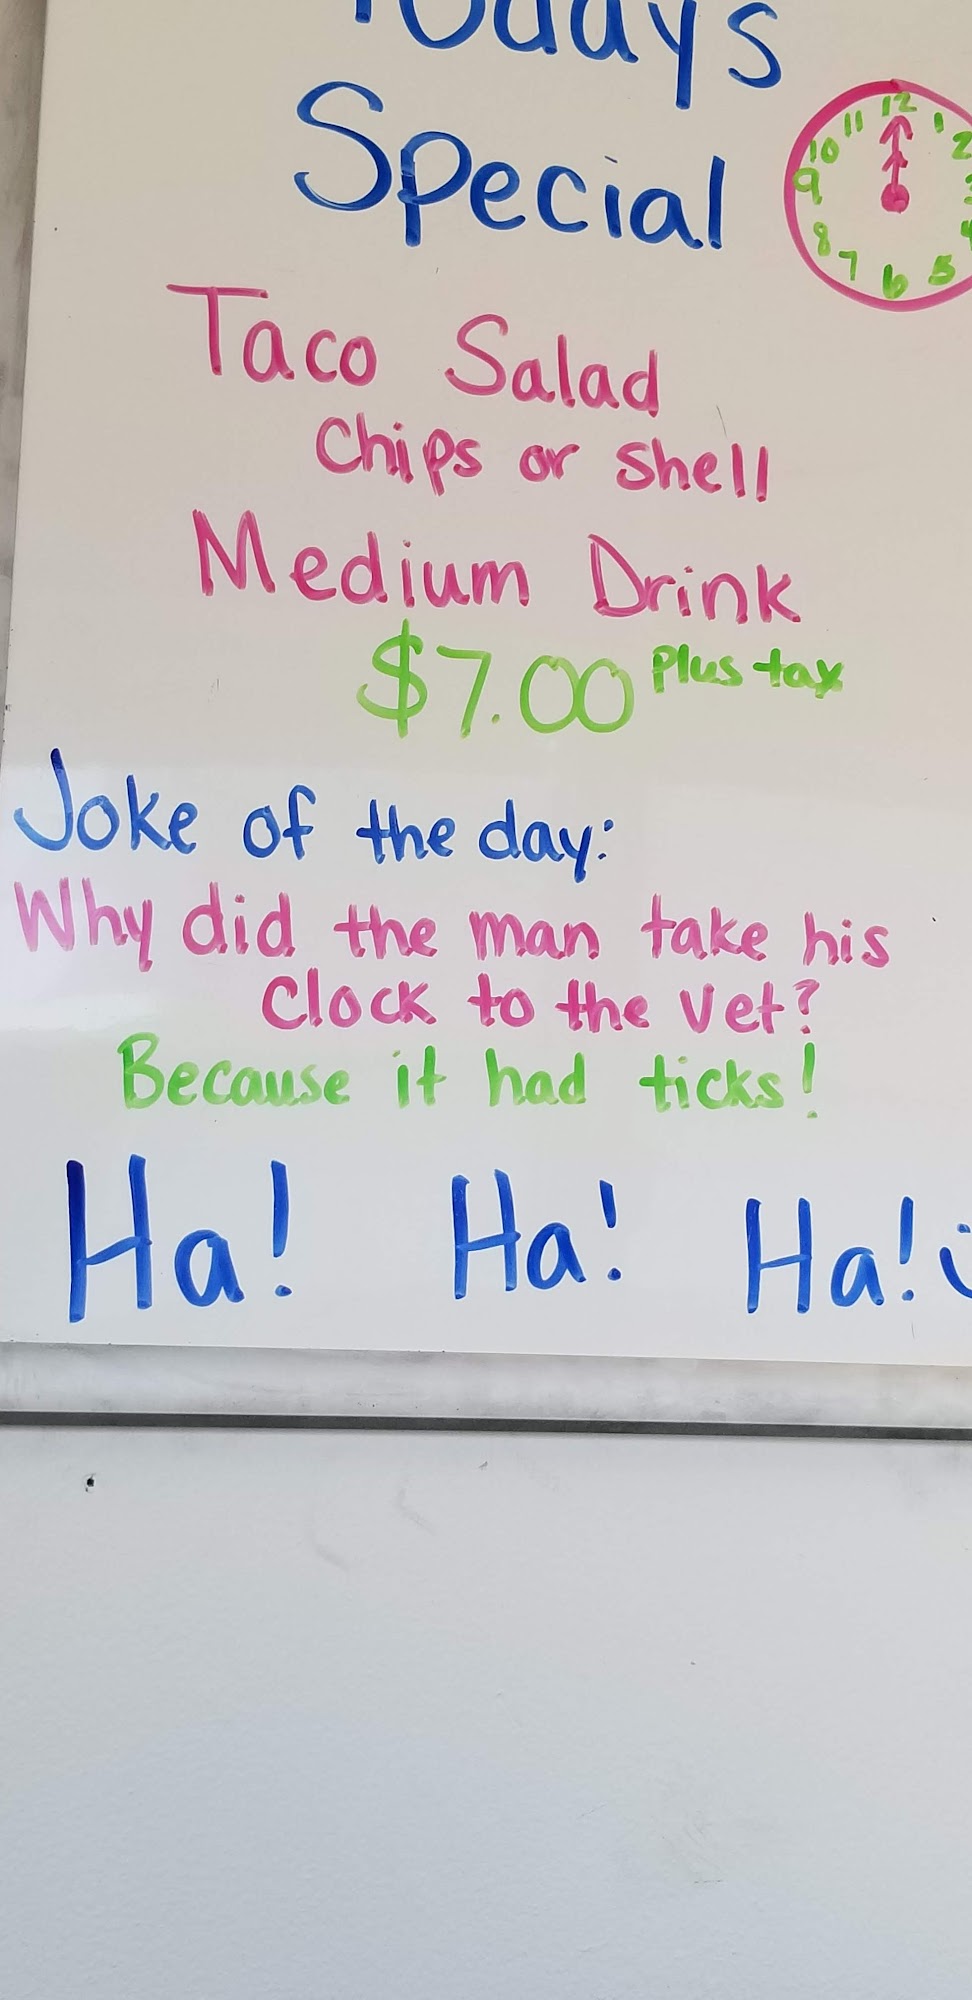 Todays
Special
12
11 1
10 2
9 3
8 4
7 6 5
Taco Salad
Chips or shell
Medium Drink
$7.00 plus tax
Joke of the day:
Why did the man take his
clock to the vet?
Because it had ticks!
Ha! Ha! Ha!